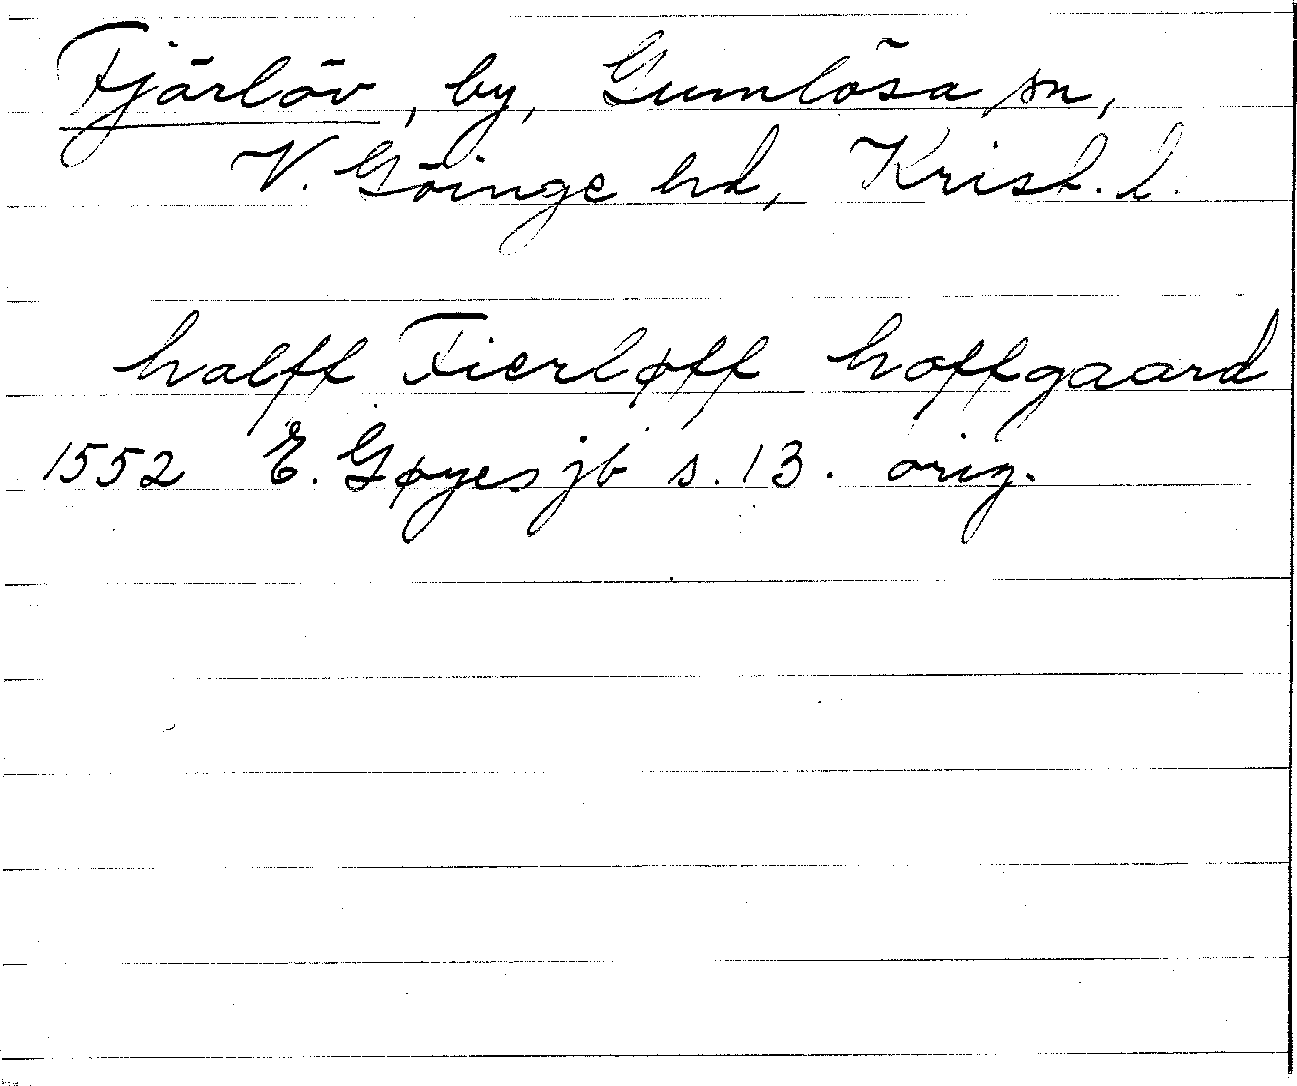 Fjärlöv, by, Gumlösa sn,
V. Göinge hd, Krist. l.
halff Fierløff hoffgaard
1552 E. Gøyes jb s. 13. orig.